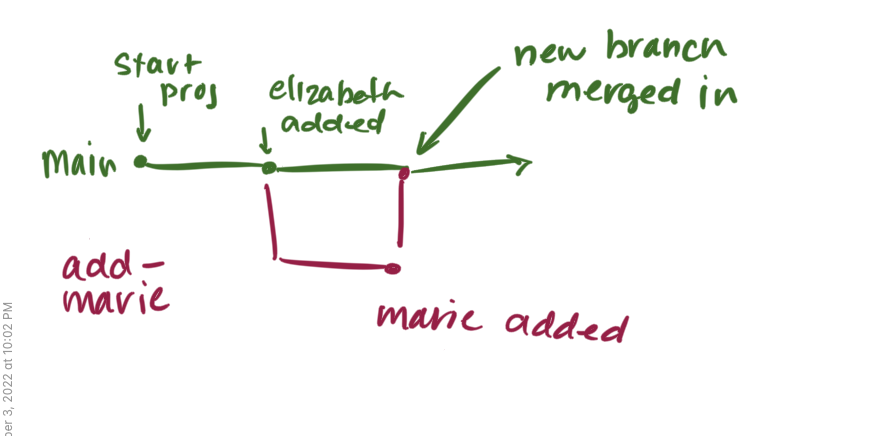 start
proj
elizabeth
added
new branch
merged in
main
add-
marie
marie added
per 3, 2022 at 10:02 PM